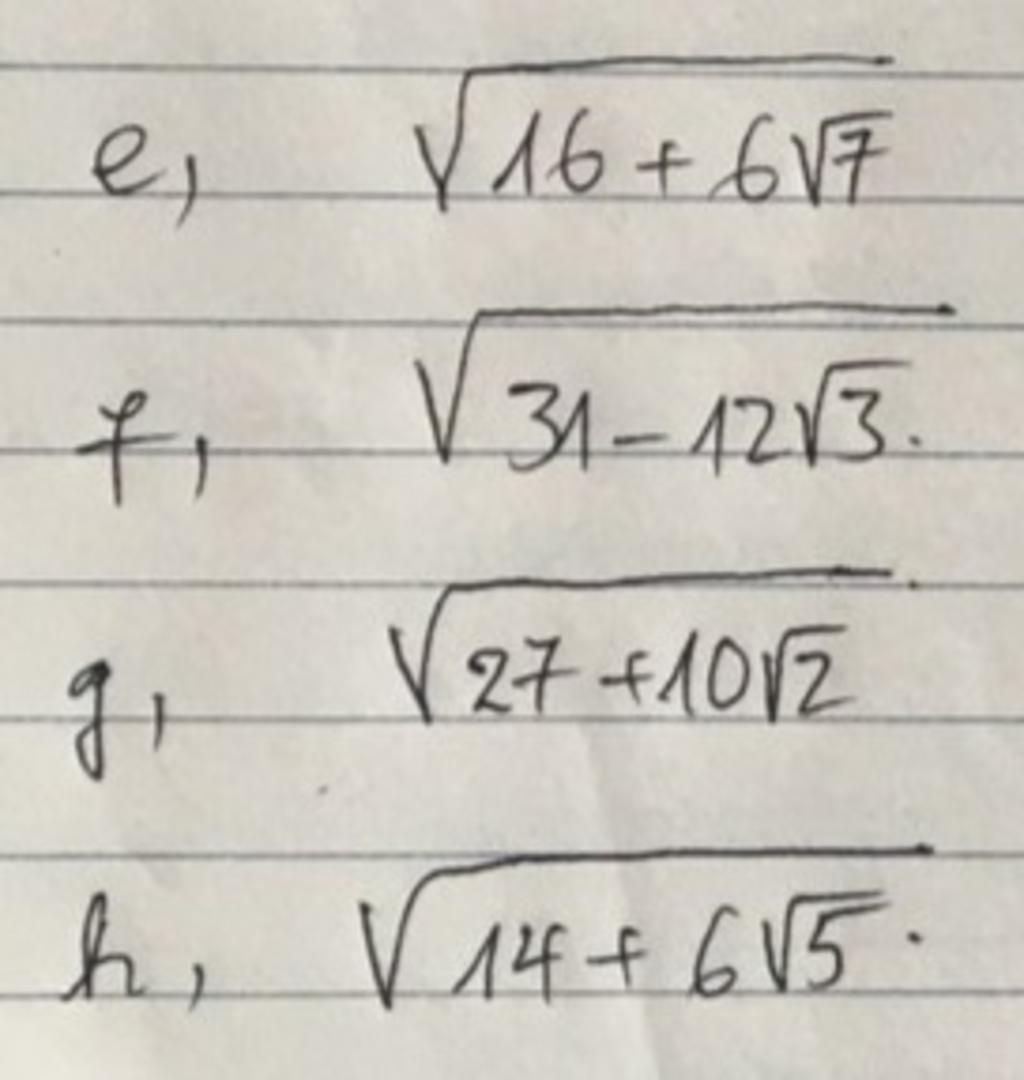 e, √(16 + 6√7)
f, √(31 - 12√3).
g, √(27 + 10√2)
h, √(14 + 6√5).